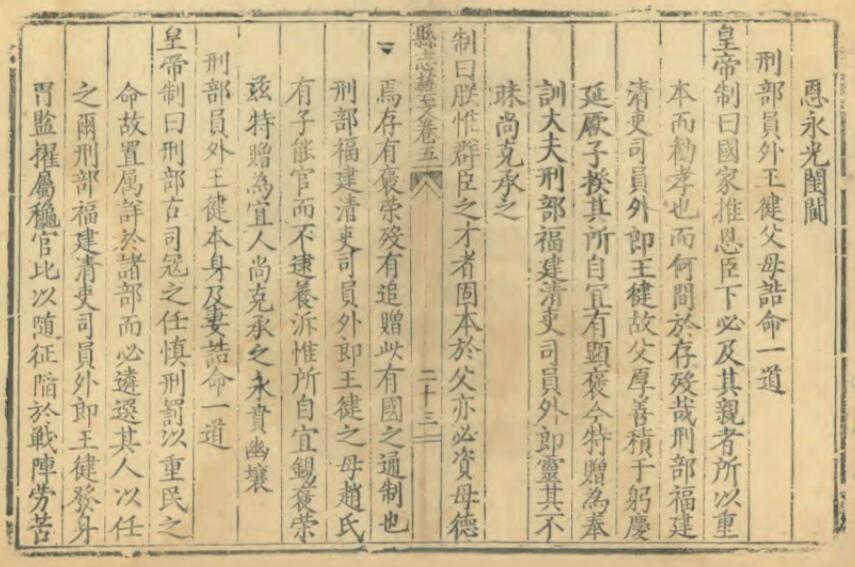 恩永光閨閫
刑部員外王健父母誥命一道
皇帝制曰國家推恩臣下必及其親者所以重
本而勸孝也而何間於存殁哉刑部福建
清吏司員外即王健故父厚善積于躬慶
延厥子揆其所自宜有顯褒今特贈為奉
訓大夫刑部福建清吏司員外即靈其不
昧尚克承之
制曰朕惟群臣之才者固本於父亦必資母德
縣志藝文卷五
二十三
焉存有褒荣殁有追贈此有國之通制也
刑部福建清吏司員外即王健之母趙氏
有子能官而不逮養泝惟所自宜錫褒荣
兹特贈為宜人尚克承之永賁幽壤
刑部員外王健本身及妻誥命一道
皇帝制曰刑部古司冦之任慎刑罰以重民之
命故置属詳於諸部而必遴選其人以任
之爾刑部福建清吏司員外即王健發身
胄監擢屬秋官比以随征偹於戰陣劳苦